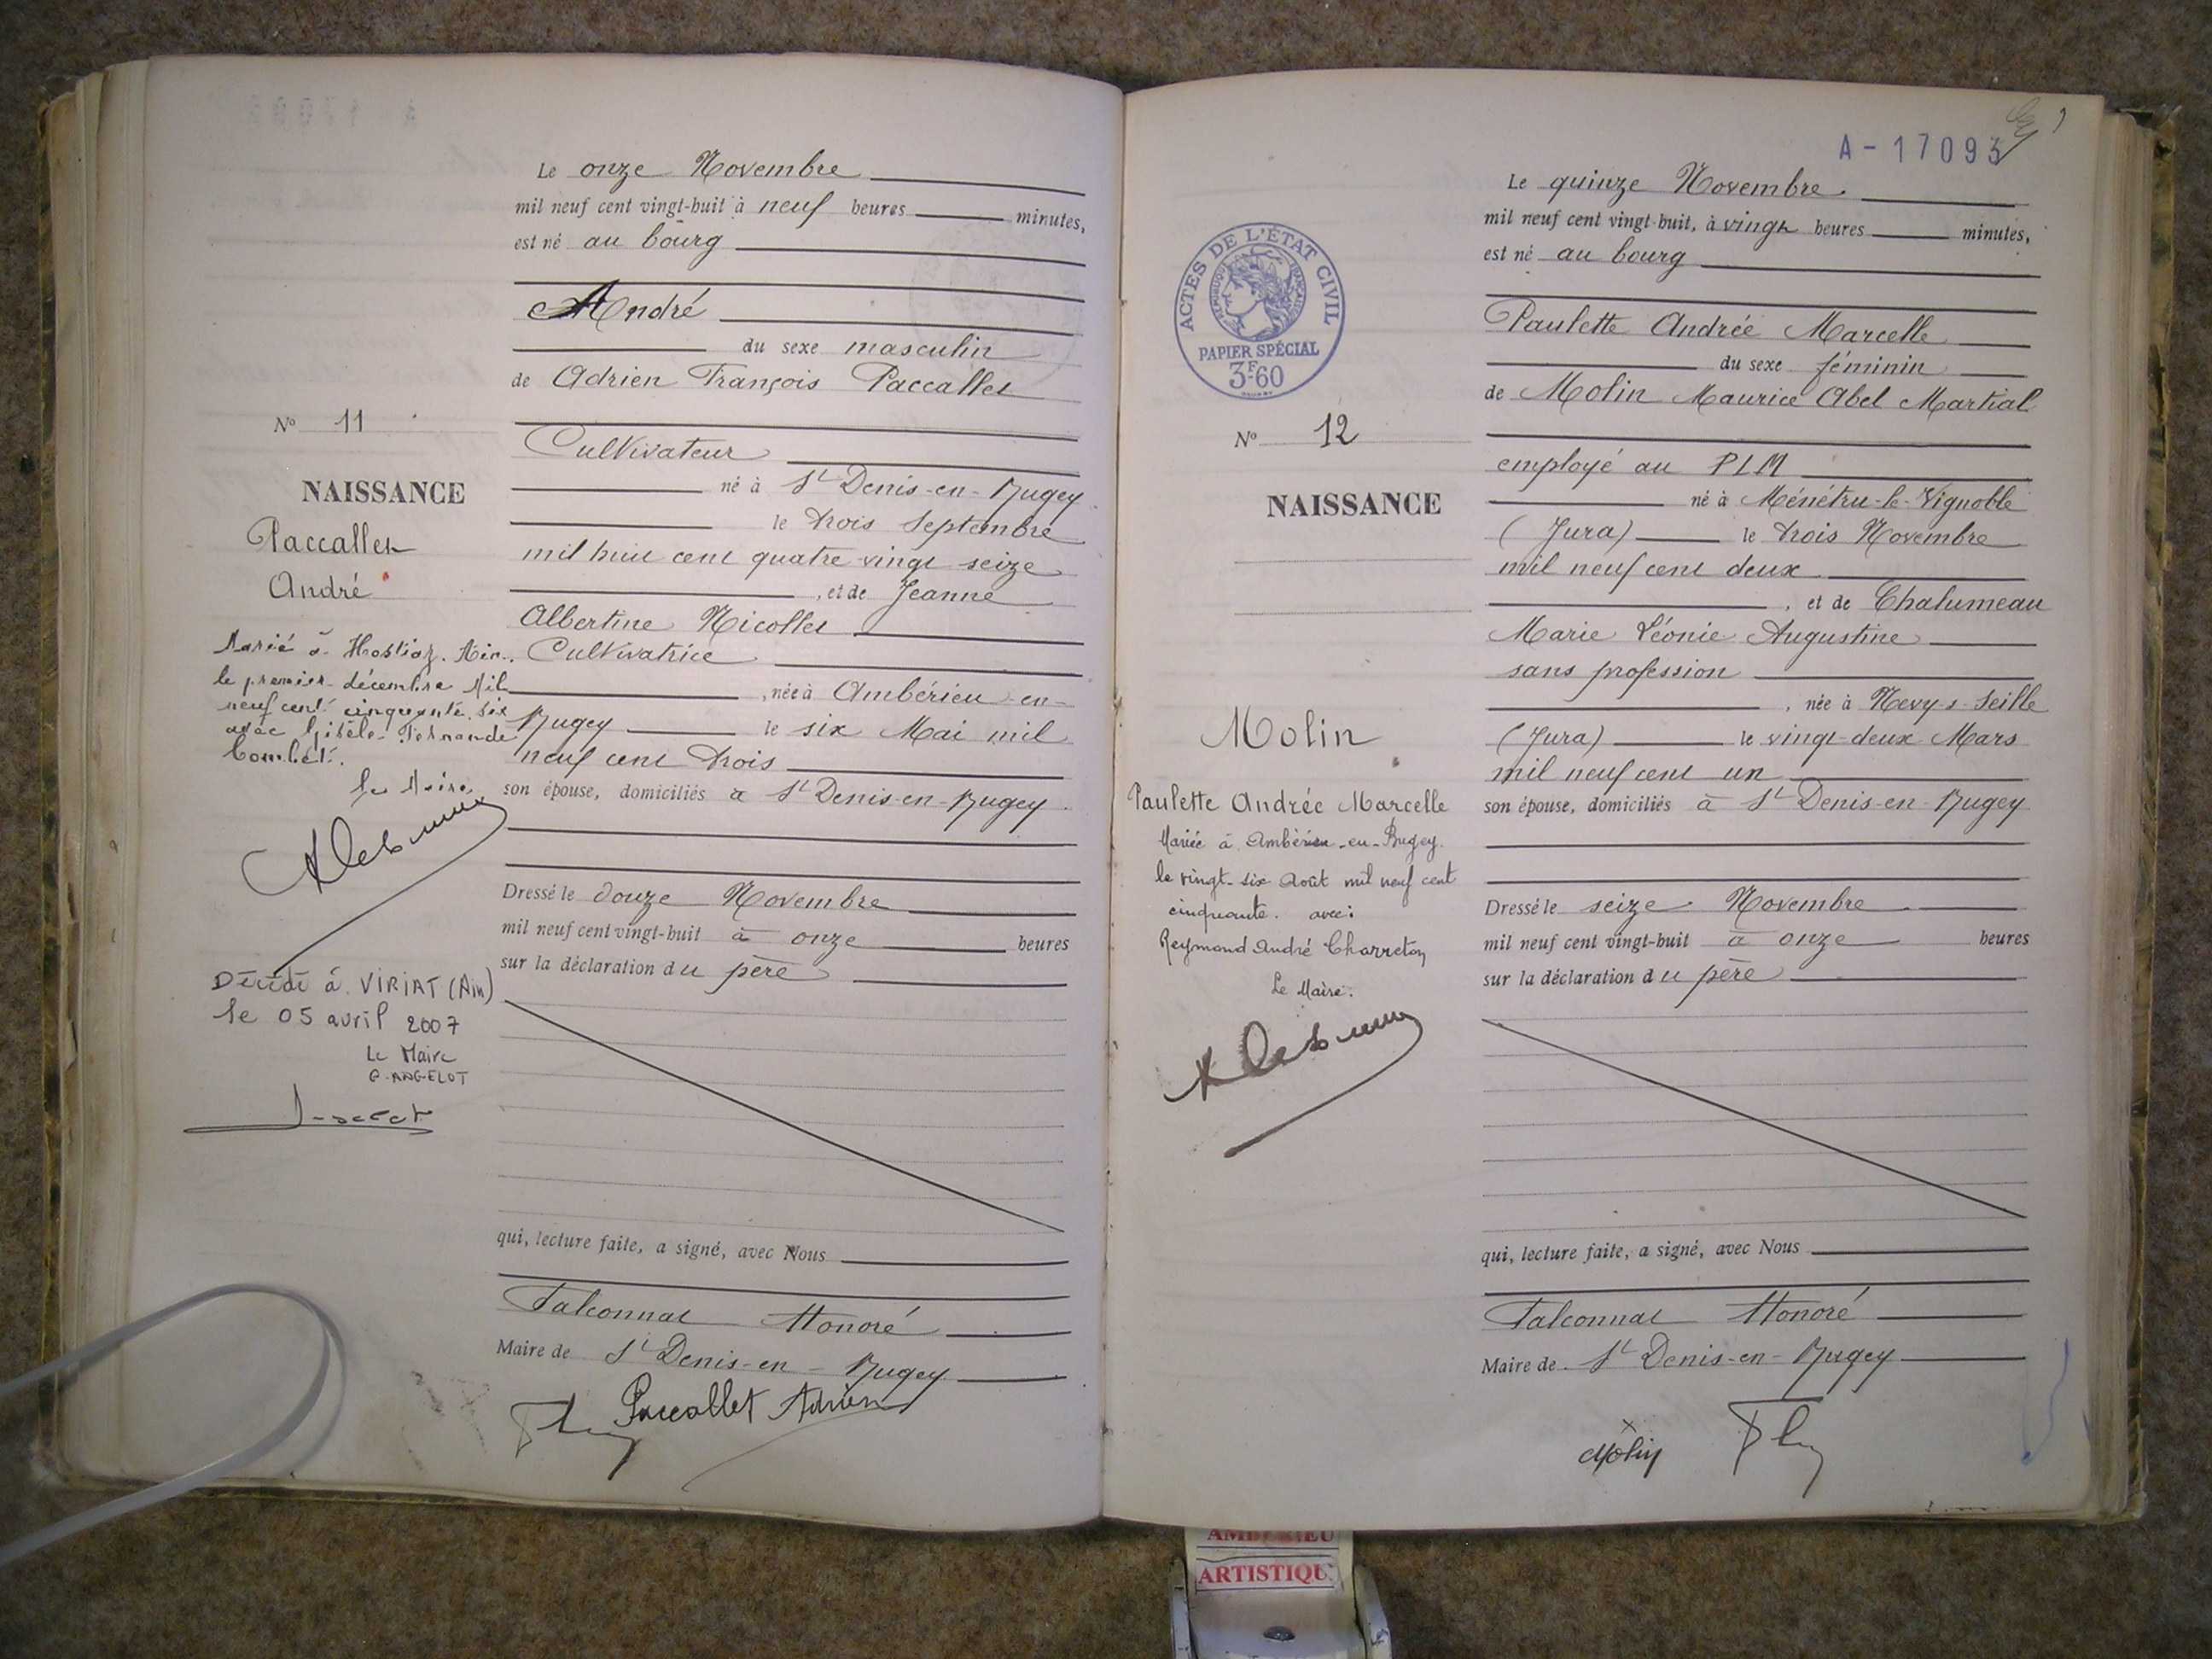 Le onze Novembre
mil neuf cent vingt-huit à neuf heures minutes,
est né au bourg
André
du sexe masculin
de Adrien François Paccallet
N° 11
Cultivateur
NAISSANCE
né à St Denis-en-Bugey
Paccallet
le trois Septembre
André
mil huit cent quatre vingt seize
, et de Jeanne
Albertine Nicollet
Marié à Hostiaz. Ain.
le premier décembre Mil
neuf cent cinquante six
avec Gisèle Fernande
Combet.
Le Maire
Cultivatrice
, née à Ambérieu-en-
Bugey le six Mai mil
neuf cent trois
son épouse, domiciliés à St Denis-en-Bugey
Dressé le douze Novembre
mil neuf cent vingt-huit à onze heures
sur la déclaration du père
Décédé à VIRIAT (Ain)
le 05 avril 2007
Le Maire
P. ANGELOT
qui, lecture faite, a signé, avec Nous
Falconnat Honoré
Maire de St Denis-en-Bugey
Paccallet Adrien
A-17093
Le quinze Novembre
mil neuf cent vingt-huit, à vingt heures minutes,
est né au bourg
ACTES DE L'ÉTAT CIVIL
RÉPUBLIQUE FRANÇAISE
PAPIER SPÉCIAL
3F60
Paulette Andrée Marcelle
du sexe féminin
de Molin Maurice Abel Martial
N° 12
employé au PLM
NAISSANCE
né à Ménétru-le-Vignoble
(Jura) le trois Novembre
mil neuf cent deux
, et de Chalumeau
Marie Léonie Augustine
sans profession
, née à Nevy-s-Seille
Molin
(Jura) le vingt-deux Mars
mil neuf cent un
Paulette Andrée Marcelle
son épouse, domiciliés à St Denis-en-Bugey
Mariée à Ambérieu-en-Bugey
le vingt-six Août mil neuf cent
cinquante. avec:
Reymond André Charreton
Le Maire.
Dressé le seize Novembre
mil neuf cent vingt-huit à onze heures
sur la déclaration du père
qui, lecture faite, a signé, avec Nous
Falconnat Honoré
Maire de St Denis-en-Bugey
Molin
ARTISTIQU